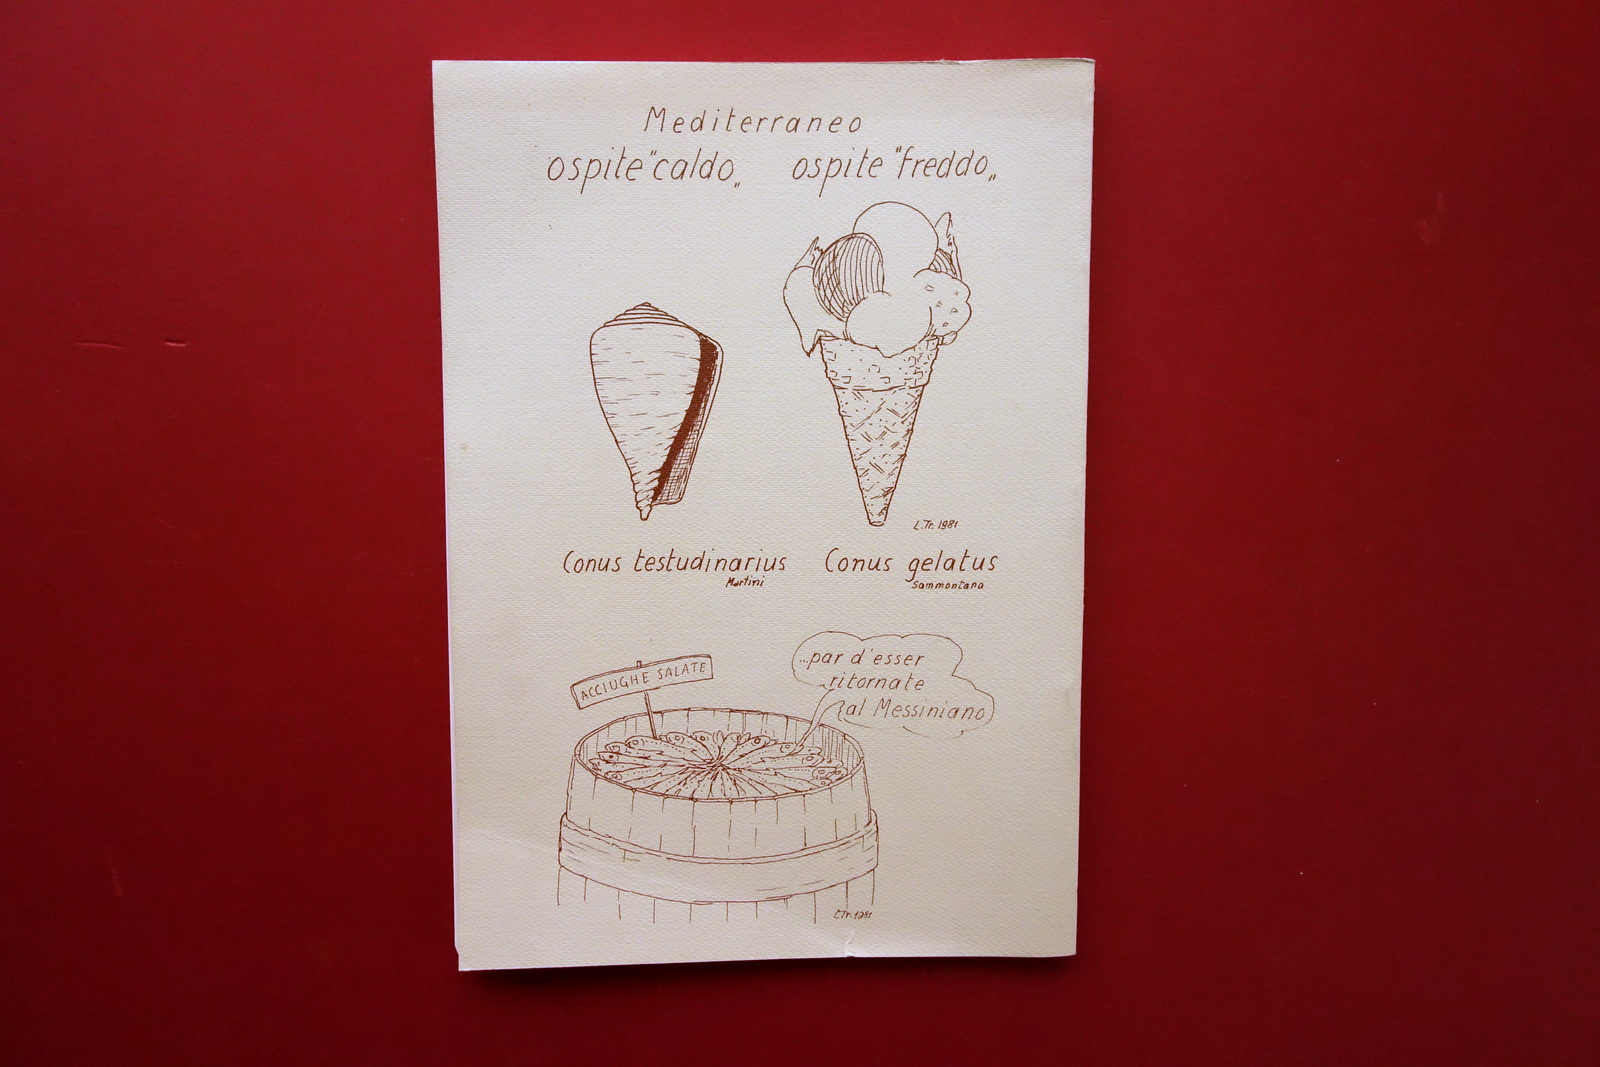 Mediterraneo
ospite "caldo„ ospite "freddo„
L.Tr. 1981
Conus testudinarius Conus gelatus
Martini Sammontana
ACCIUGHE SALATE
...par d'esser
ritornate
al Messiniano
L.Tr. 1981